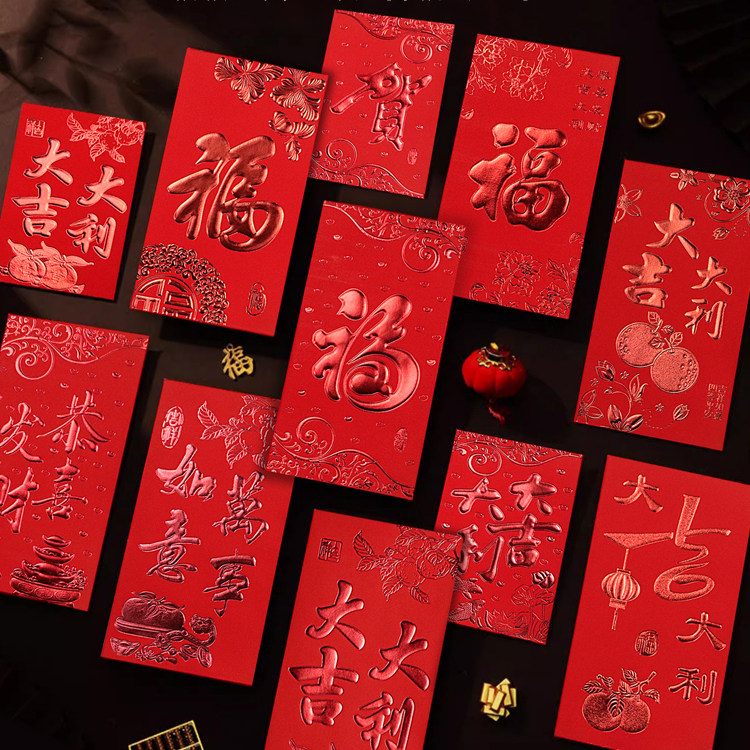 大吉
大利
福
賀
福
大吉
大利
福
福
恭喜
发财
萬事
如意
大吉
大利
大吉
大利
大吉
大利